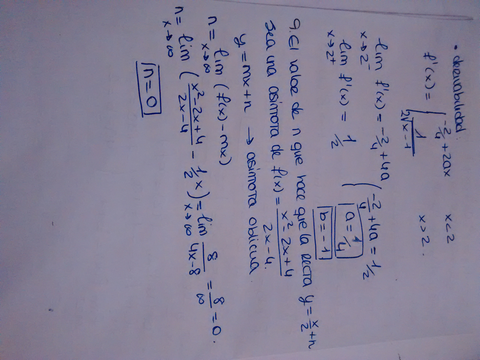 • derivabilidad.
f'(x) = { -2/4 + 2ax x<2
1/(2√x-1) x>2.
lim x→2⁻ f'(x) = -2/4 + 4a
lim x→2⁺ f'(x) = 1/2
-2/4 + 4a = 1/2
a = 1/4
b = -1
9. El valor de n que hace que la recta y = x/2 + n
sea una asímota de f(x) = x²-2x+4 / 2x-4.
y = mx+n → asimota oblicua.
n = lim x→∞ (f(x) - mx)
n = lim x→∞ (x²-2x+4 / 2x-4 - 1/2 x) = lim x→∞ 8 / 4x-8 = 8/∞ = 0.
n = 0